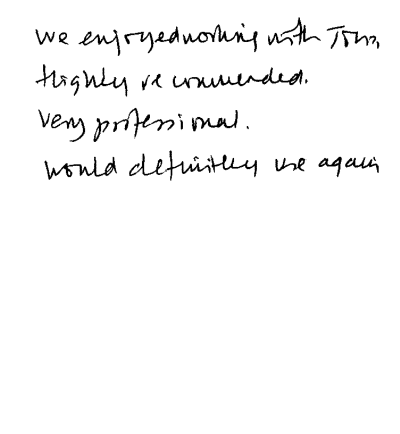 We enjoyed working with Tom,
Highly recommended.
Very professional.
Would definitely use again